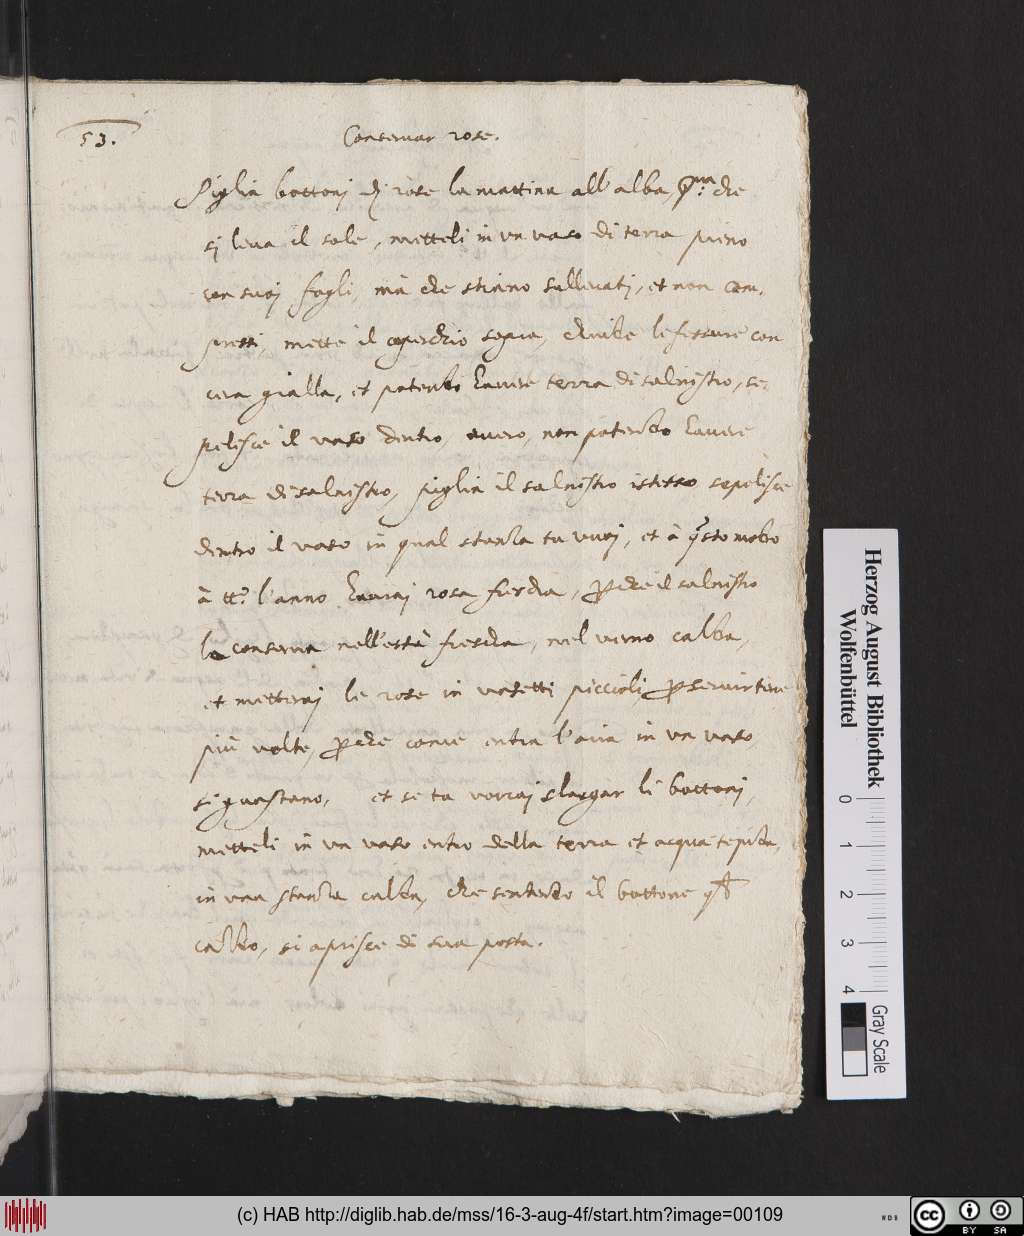 53.
Conseruar rose.
Piglia bottonj dj rose la mattina all'alba, p.ma che
si leua il sole, metteli in vn vaso di terra pieno
con suoj fogli, mà che stiano solleuatj, et non com-
pressi, mette il coperchio sopra, chiude le fessure con
cera gialla, et potendo hauere terra di salnistro, se-
pelisce il vaso dentro, ouero, non potendo hauere
terra di salnistro, piglia il salnistro istesso sepelisce
dentro il vaso in qual stanza tu vuoj, et à q.sto modo
à tt.o l'anno hauraj rosa frescha, p che il salnistro
la conserua nell'està frescha, nel verno calda,
et metteraj le rose in vasetti piccioli, p seruirtene
più volte, p che come entra l'aria in vn vaso,
si guastano, et se tu vorraj slargar li bottonj,
metteli in vn vaso entro della terra et acqua tepida,
in vna stanza calda, che sentendo il bottone
caldo, si aprisce di sua posta.
Herzog August Bibliothek
Wolfenbüttel
0 1 2 3 4
Gray Scale
(c) HAB http://diglib.hab.de/mss/16-3-aug-4f/start.htm?image=00109
WDB
cc
BY SA